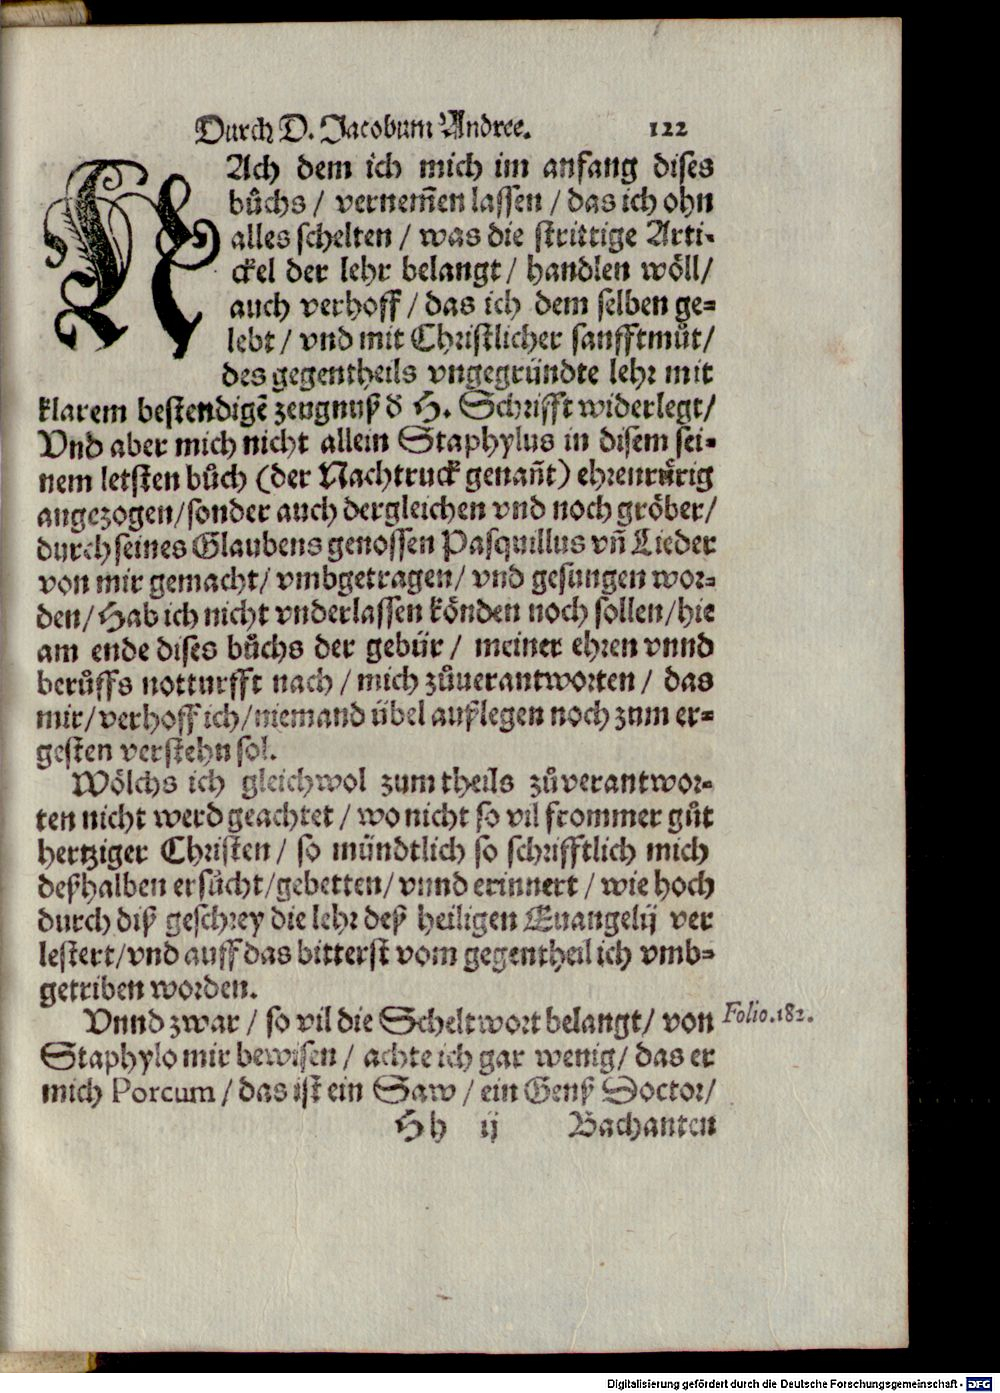 Durch D. Jacobum Andree. 122
NAch dem ich mich im anfang dises
bůchs / vernem̃en lassen / das ich ohn
alles schelten / was die strittige Arti-
ckel der lehr belangt / handlen wöll /
auch verhoff / das ich dem selben ge-
lebt / vnd mit Christlicher sanfftmůt /
des gegentheils vngegründte lehr mit
klarem bestendigẽ zeugnuß d H. Schrifft widerlegt /
Vnd aber mich nicht allein Staphylus in disem sei-
nem letsten bůch (der Nachtruck genañt) ehrenrürig
angezogen / sonder auch dergleichen vnd noch gröber /
durch seines Glaubens genossen Pasquillus vñ Lieder
von mir gemacht / vmbgetragen / vnd gesungen wor-
den / Hab ich nicht vnderlassen könden noch sollen / hie
am ende dises bůchs der gebür / meiner ehren vnnd
berůffs notturfft nach / mich zůuerantworten / das
mir / verhoff ich / niemand übel außlegen noch zum er-
gesten verstehn sol.
Wölchs ich gleichwol zum theils zůverantwor-
ten nicht werd geachtet / wo nicht so vil frommer gůt
hertziger Christen / so mündtlich so schrifftlich mich
deßhalben ersůcht / gebetten / vnnd erinnert / wie hoch
durch diß geschrey die lehr deß heiligen Euangelij ver
lestert / vnd auff das bitterst vom gegentheil ich vmb-
getriben worden.
Vnnd zwar / so vil die Scheltwort belangt / von Folio.182.
Staphylo mir bewisen / achte ich gar wenig / das er
mich Porcum / das ist ein Saw / ein Genß Doctor /
Hh ij Bachanten
Digitalisierung gefördert durch die Deutsche Forschungsgemeinschaft - DFG